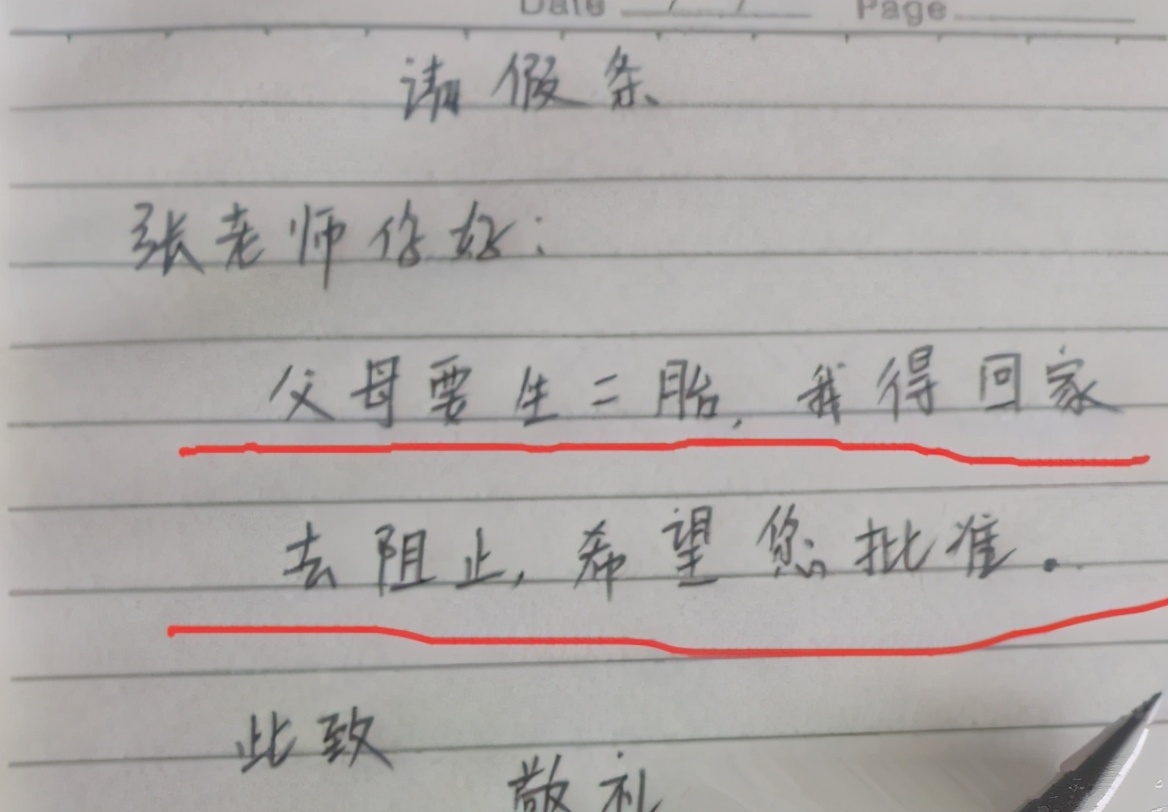 Date / / Page
请假条
张老师你好:
父母要生二胎,我得回家
去阻止,希望您批准.
此致
敬礼